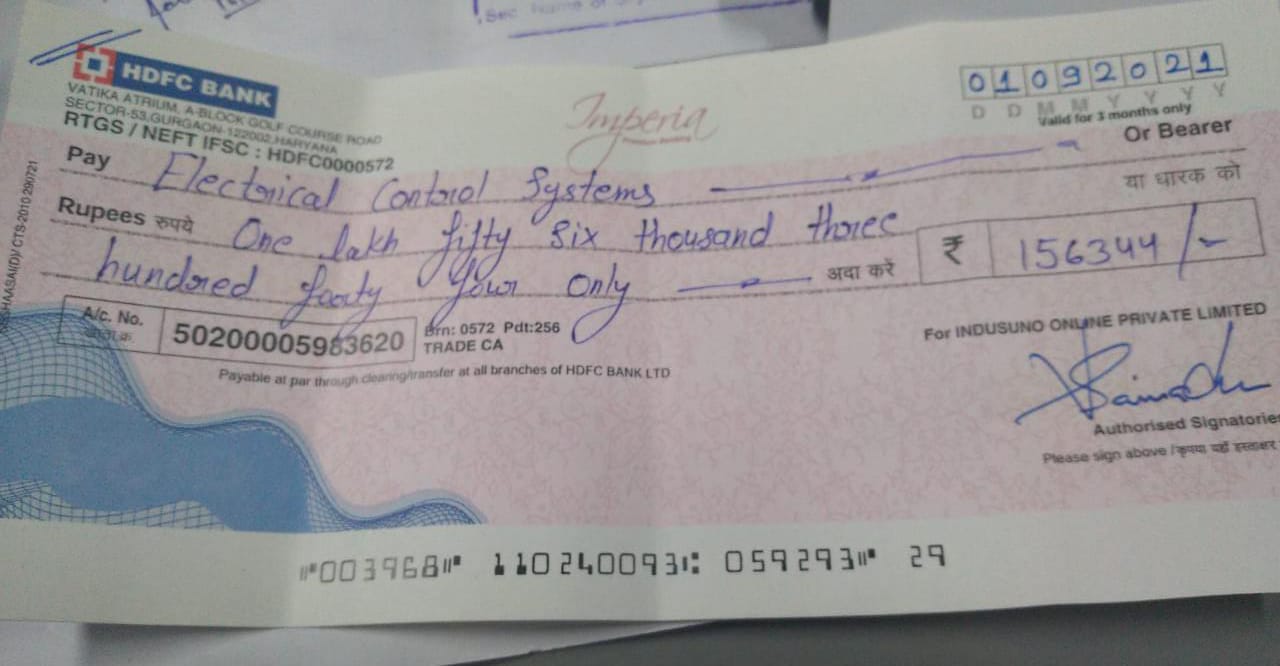 Sec. Name of
HDFC BANK
VATIKA ATRIUM, A-BLOCK GOLF COURSE ROAD
SECTOR-53,GURGAON-122002,HARYANA
RTGS / NEFT IFSC : HDFC0000572
Imperia
01092021
D D M M Y Y Y Y
Valid for 3 months only
Pay Electrical Control Systems Or Bearer
या धारक को
Rupees रुपये One lakh fifty six thousand three
hundred forty four only अदा करें ₹ 156344/-
A/c. No. 50200005983620 Brn: 0572 Pdt:256
TRADE CA
Payable at par through clearing/transfer at all branches of HDFC BANK LTD
For INDUSUNO ONLINE PRIVATE LIMITED
Authorised Signatories
Please sign above /कृपया यहाँ हस्ताक्षर
CTS-2010
⑈003968⑈ 110240093⑆ 059293⑈ 29